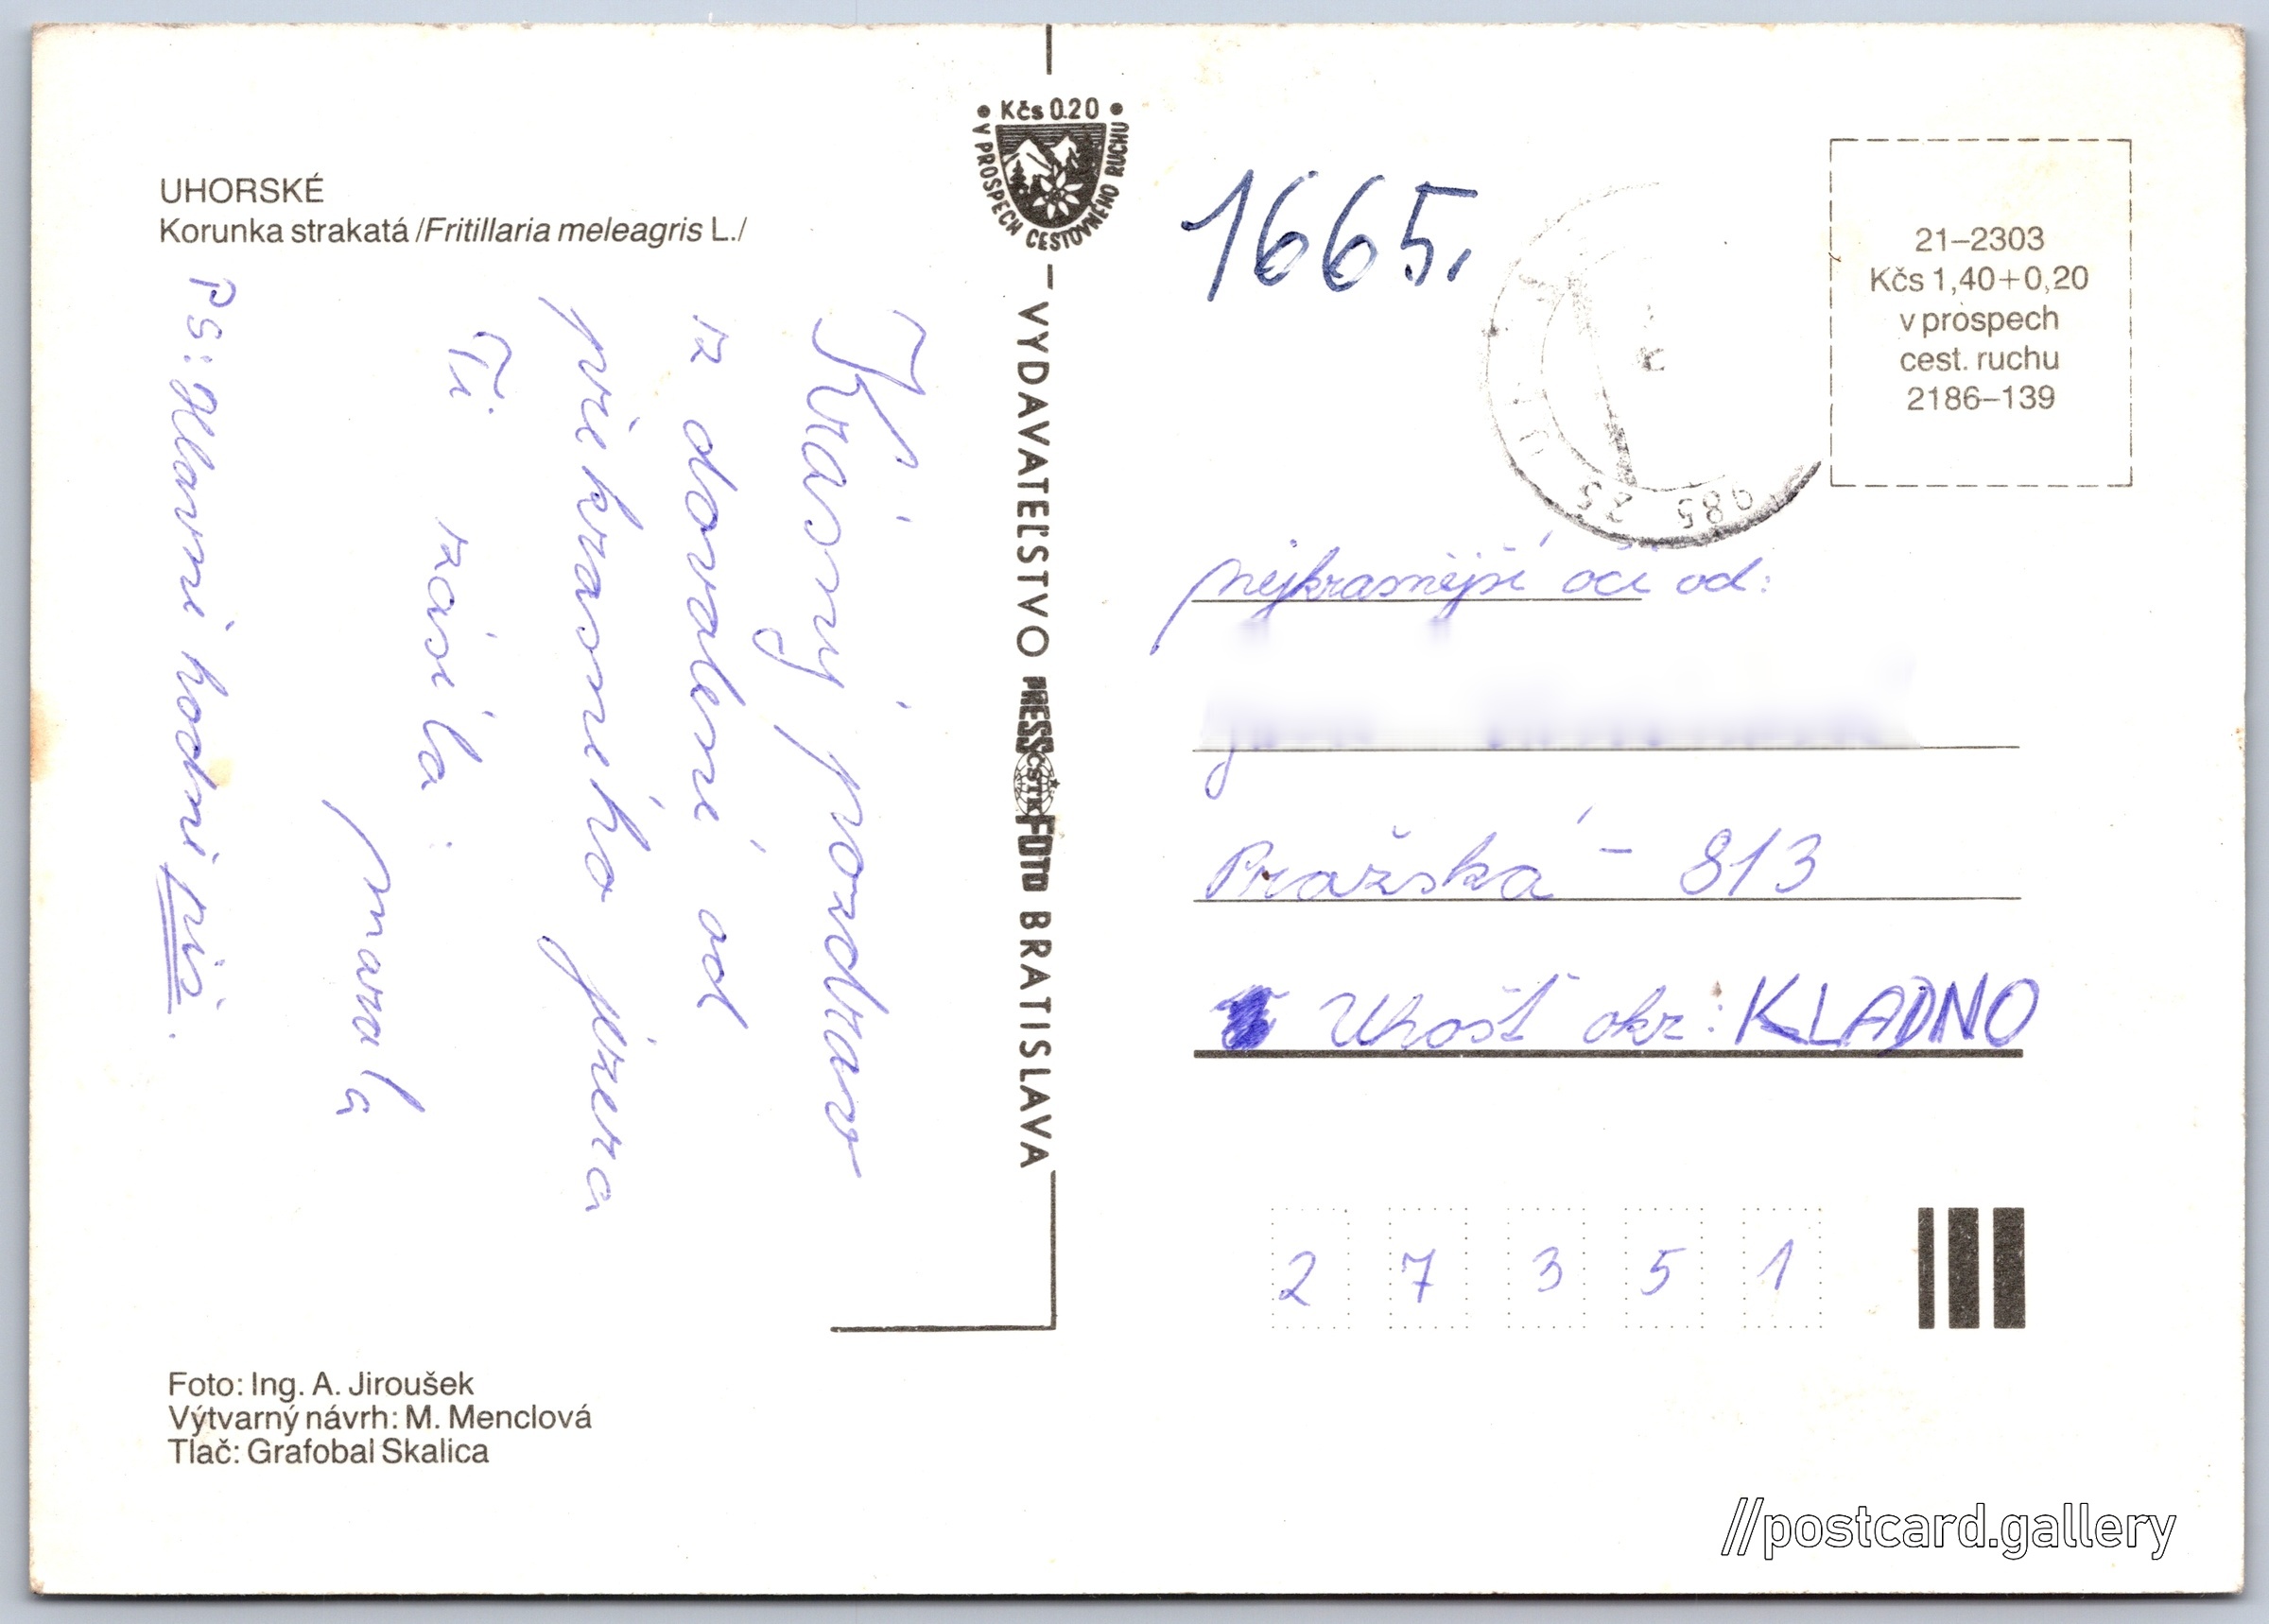 UHORSKÉ
Korunka strakatá /Fritillaria meleagris L./
Krásný pozdrav
z dovolené od
překrasného jezera
Ti zásila:
PS: Hlavní hodně piš.
Foto: Ing. A. Jiroušek
Výtvarný návrh: M. Menclová
Tlač: Grafobal Skalica
Kčs 0.20
V PROSPECH CESTOVNÉHO RUCHU
VYDAVATEĽSTVO PRESSFOTO BRATISLAVA
ČSTK
1665.
21–2303
Kčs 1,40+0,20
v prospech
cest. ruchu
2186–139
985 25
nejkrasnější oči od:
Pražská – 813
Uhošť okr: KLADNO
2 7 3 5 1
//postcard.gallery